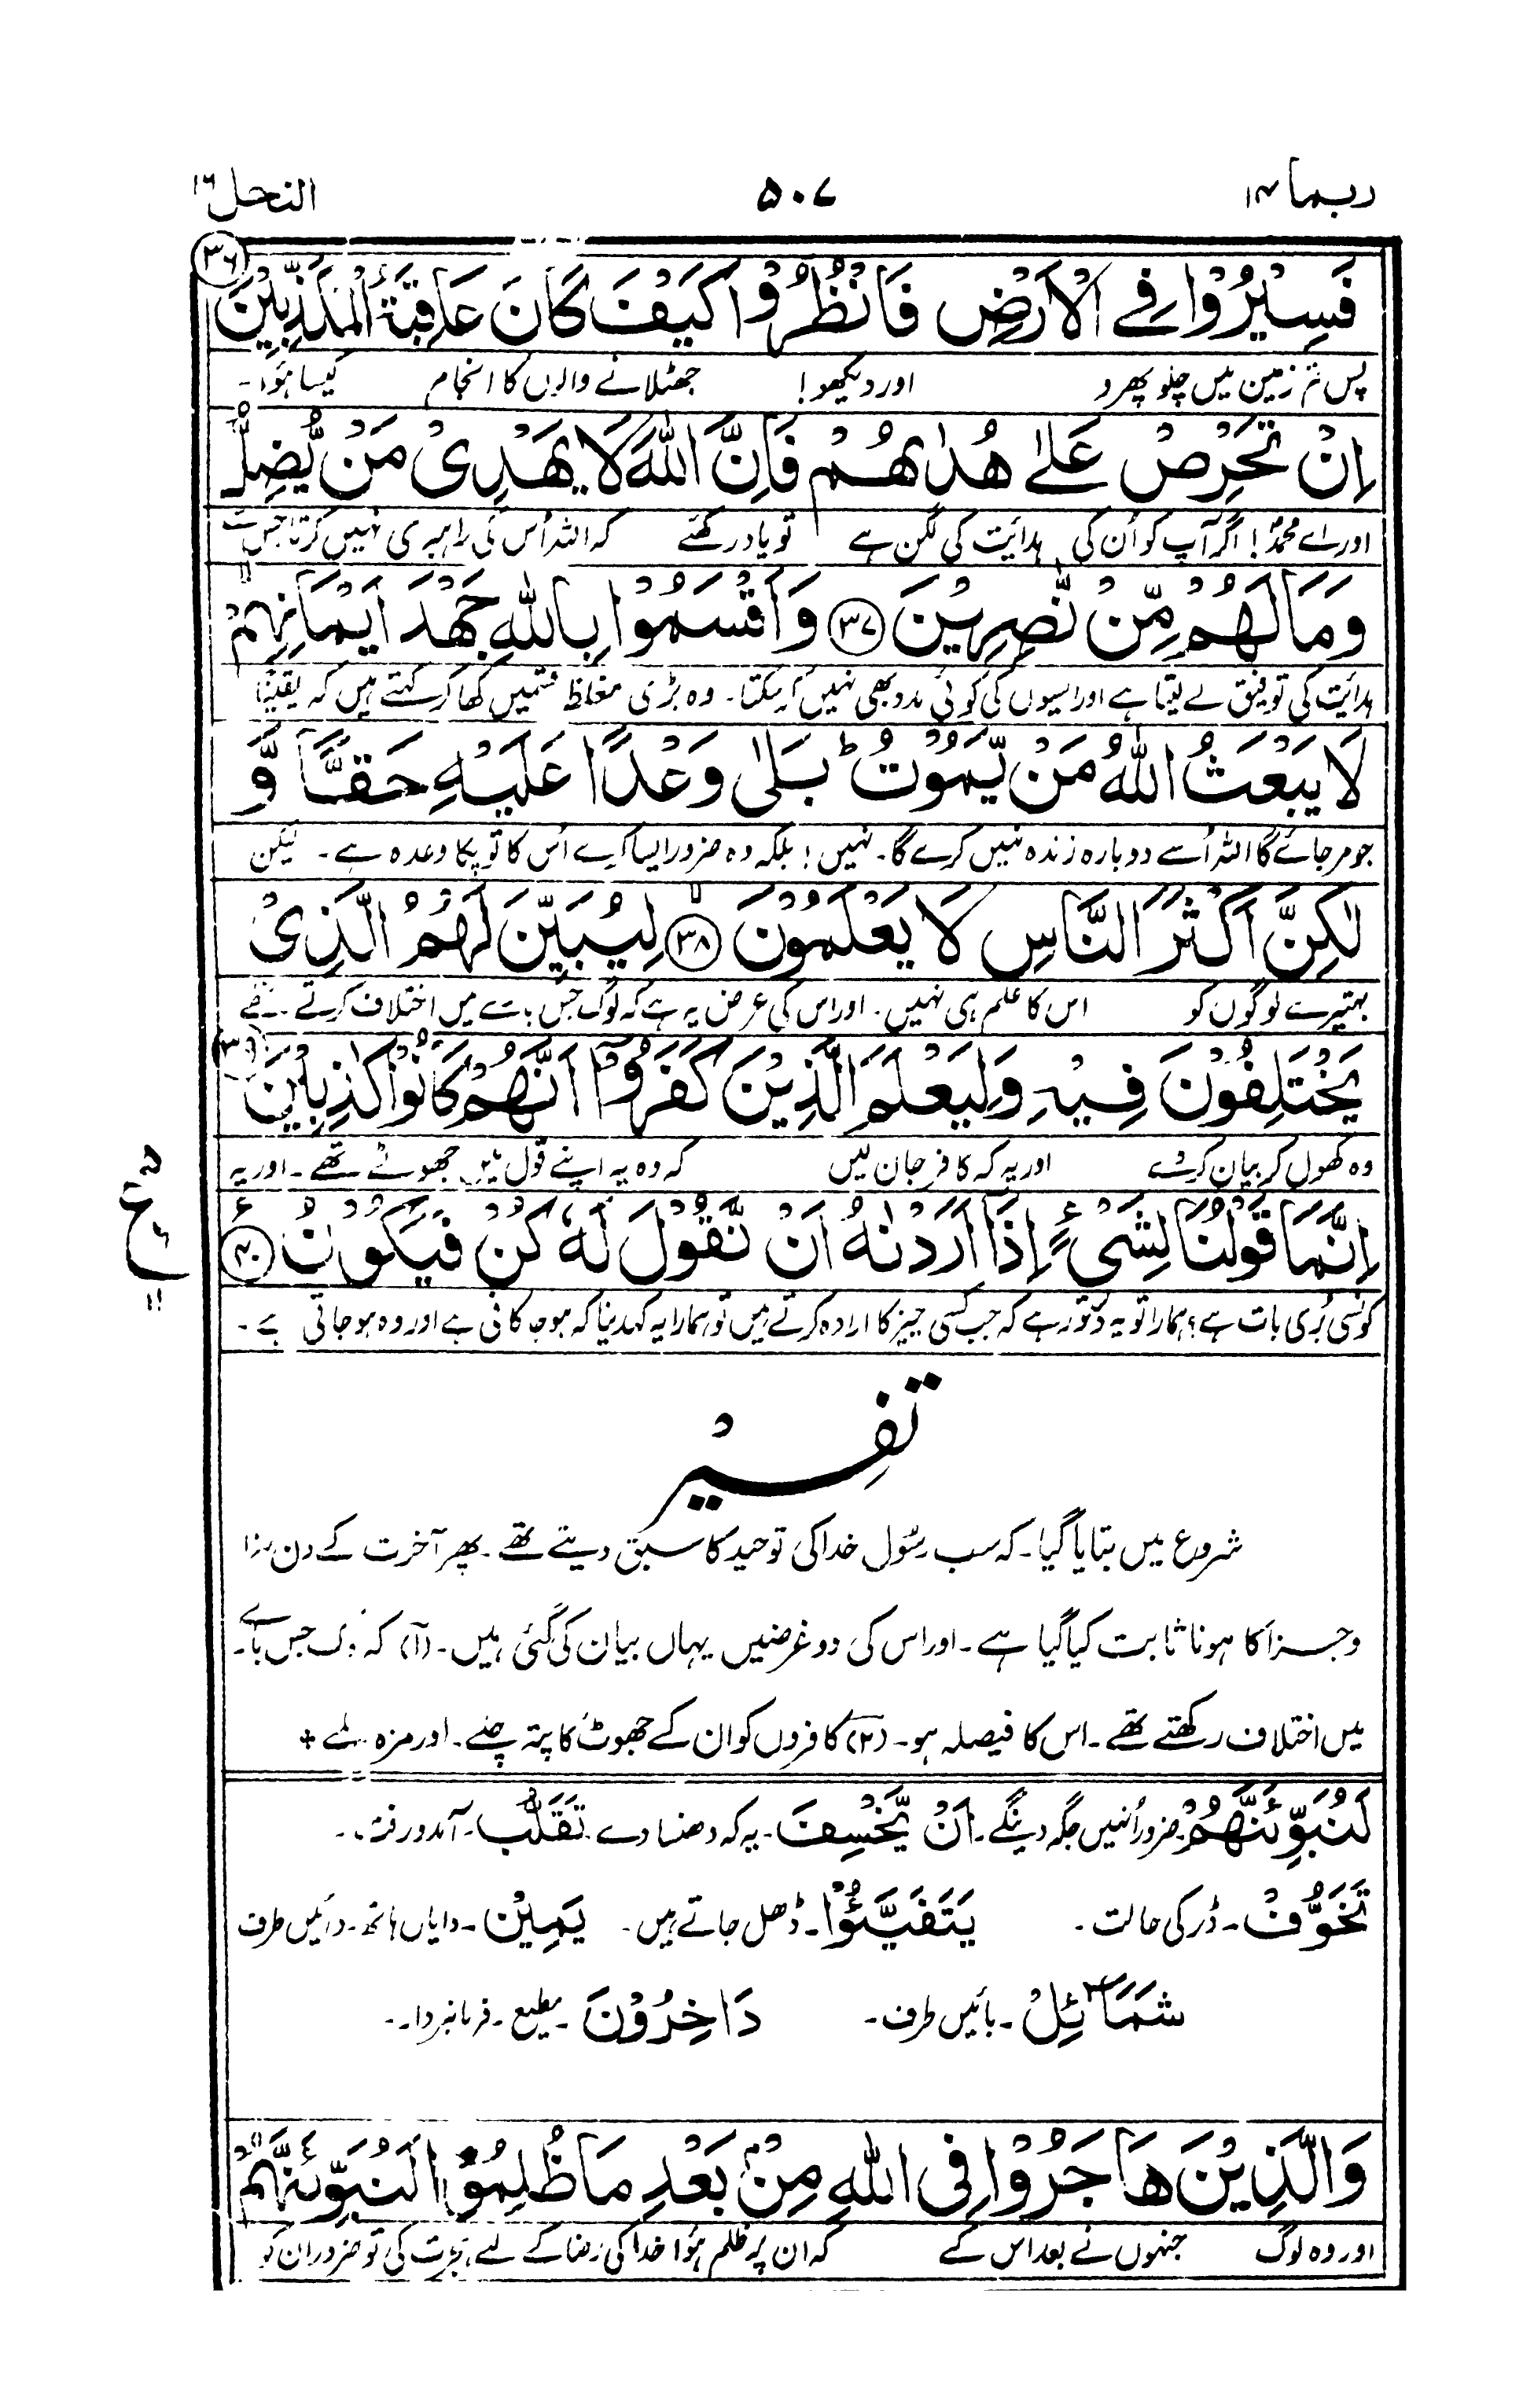 ربما ۱۴ ۵۰۷ النحل ۱۶
فَسِيْرُوْا فِي الْاَرْضِ فَانْظُرُوْا كَيْفَ كَانَ عَاقِبَةُ الْمُكَذِّبِيْنَ ۳۶
پس تم زمین میں چلو پھرو اور دیکھو! جھٹلانے والوں کا انجام کیسا ہؤا۔
اِنْ تَحْرِصْ عَلٰى هُدٰىهُمْ فَاِنَّ اللّٰهَ لَا يَهْدِىْ مَنْ يُّضِلُّ
اور اے محمدؐ! اگر آپ کو اُن کی ہدائیت کی لگن ہے تو یاد رکھئے کہ اللہ اُس کی راہبری نہیں کرتا جس سے
وَمَا لَهُمْ مِّنْ نّٰصِرِيْنَ ۳۷ وَاَقْسَمُوْا بِاللّٰهِ جَهْدَ اَيْمَانِهِمْ
ہدائیت کی توفیق لے لیتا ہے اور ایسوں کی کوئی مدد بھی نہیں کر سکتا۔ وہ بڑی مغلظ قسمیں کھا کر کہتے ہیں کہ یقینًا
لَا يَبْعَثُ اللّٰهُ مَنْ يَّمُوْتُ ؕ بَلٰى وَعْدًا عَلَيْهِ حَقًّا وَّ
جو مر جائے گا اللہ اُسے دوبارہ زندہ نہیں کرے گا۔ نہیں! بلکہ وہ ضرور ایسا کرے اُس کا تو پکا وعدہ ہے۔ لیکن
لٰكِنَّ اَكْثَرَ النَّاسِ لَا يَعْلَمُوْنَ ۳۸ لِيُبَيِّنَ لَهُمُ الَّذِىْ
بہتیرے لوگوں کو اس کا علم ہی نہیں۔ اور اس کی غرض یہ ہے کہ لوگ جس بات میں اختلاف کرتے تھے
يَخْتَلِفُوْنَ فِيْهِ وَلِيَعْلَمَ الَّذِيْنَ كَفَرُوْٓا اَنَّهُمْ كَانُوْا كٰذِبِيْنَ ۳۹
وہ کھول کر بیان کر دے اور یہ کہ کافر جان لیں کہ وہ یہ اپنے قول میں جھوٹے تھے۔ اور یہ
اِنَّمَا قَوْلُنَا لِشَىْءٍ اِذَآ اَرَدْنٰهُ اَنْ نَّقُوْلَ لَهٗ كُنْ فَيَكُوْنُ ۴۰
کونسی بُری بات ہے؟ ہمارا تو یہ دستور ہے کہ جب کسی چیز کا ارادہ کرتے ہیں تو ہمارا یہ کہدینا کہ ہو جا کافی ہے اور وہ ہو جاتی ہے۔
ع
۱۱
تفسیر
شروع میں بتایا گیا۔ کہ سب رسُول خدا کی توحید کا سبق دیتے تھے۔ پھر آخرت کے دن سزا
و جزا کا ہونا ثابت کیا گیا ہے۔ اور اس کی دو غرضیں یہاں بیان کی گئی ہیں۔ (۱) کہ لوگ جس بات
میں اختلاف رکھتے تھے۔ اس کا فیصلہ ہو۔ (۲) کافروں کو ان کے جھوٹ کا پتہ چلے۔ اور مزہ ملے +
لَنُبَوِّئَنَّهُمْ۔ ضرور اُنہیں جگہ دینگے۔ اَنْ يَّخْسِفَ۔ یہ کہ دھنسا دے۔ تَقَلُّب۔ آمدورفت۔
تَخَوُّفْ۔ ڈر کی حالت۔ يَتَفَيَّئُوْا۔ ڈھل جاتے ہیں۔ يَمِيْن۔ دایاں ہاتھ۔ دائیں طرف
شَمَآئِلْ۔ بائیں طرف۔ دَاخِرُوْنَ۔ مطیع۔ فرمانبردار۔
وَالَّذِيْنَ هَاجَرُوْا فِى اللّٰهِ مِنْۢ بَعْدِ مَا ظُلِمُوْا لَنُبَوِّئَنَّهُمْ
اور وہ لوگ جنہوں نے بعد اس کے کہ ان پر ظلم ہؤا خدا کی رضا کے لیے ہجرت کی تو ضرور ان کو